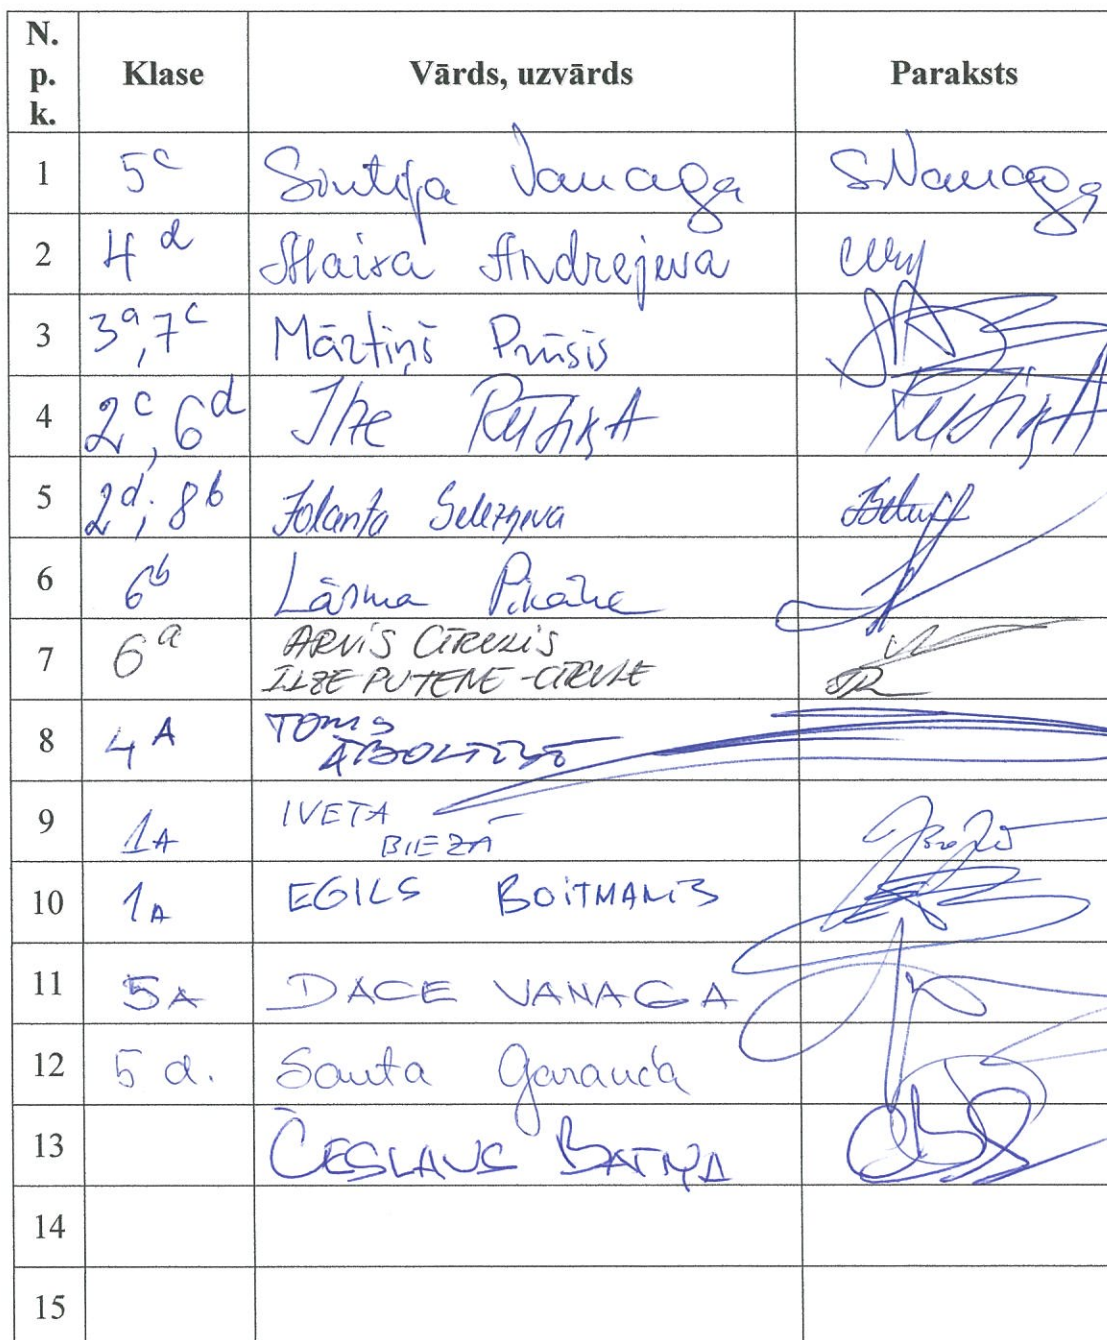 N. p. k. Klase Vārds, uzvārds Paraksts
1 5c Sintija Vanaga SVanaga
2 4d Maira Andrejeva
3 3a, 7c Mārtiņš Prūsis
4 2c, 6d Ilze RUTIŅA RUTIŅA
5 2d; 8b Jolanta Selezņeva
6 6b Lāsma
7 6a ARVIS CĪRULIS
ILZE PUTENE-CĪRULE
8 4A TOMS
ĀBOLTIŅŠ
9 1A IVETA
BIEZĀ
10 1A EGILS BOITMANIS
11 5A DACE VANAGA
12 5d. Santa Garanča
13 ČESLAVS BATŅA
14
15